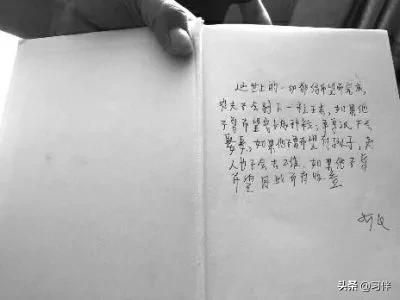 这世上的一切都借希望而完成,
农夫不会剥下一粒玉米,如果他
不曾希望它长成种粒;单身汉不会
娶妻,如果他不曾希望有孩子;商
人也不会去工作,如果他不曾
希望因此而有收益
头条 @习伴